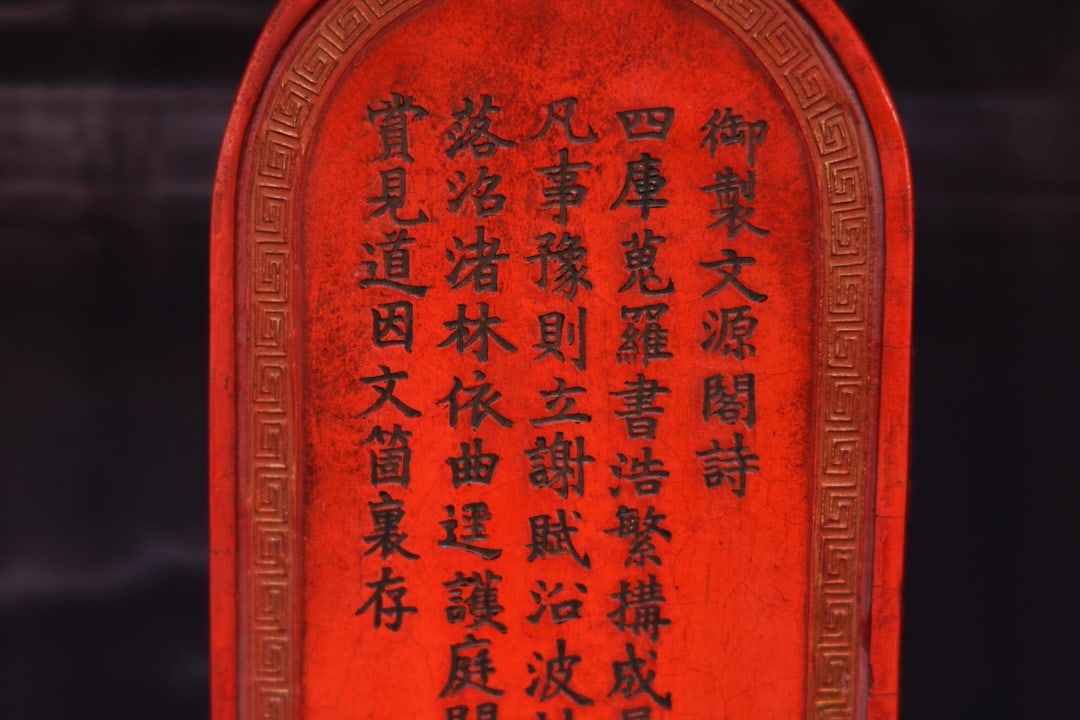 御製文源閣詩
四庫蒐羅書浩繁構成
凡事豫則立謝賦沿波
落沼渚林依曲逕護庭
賞見道因文箇裏存